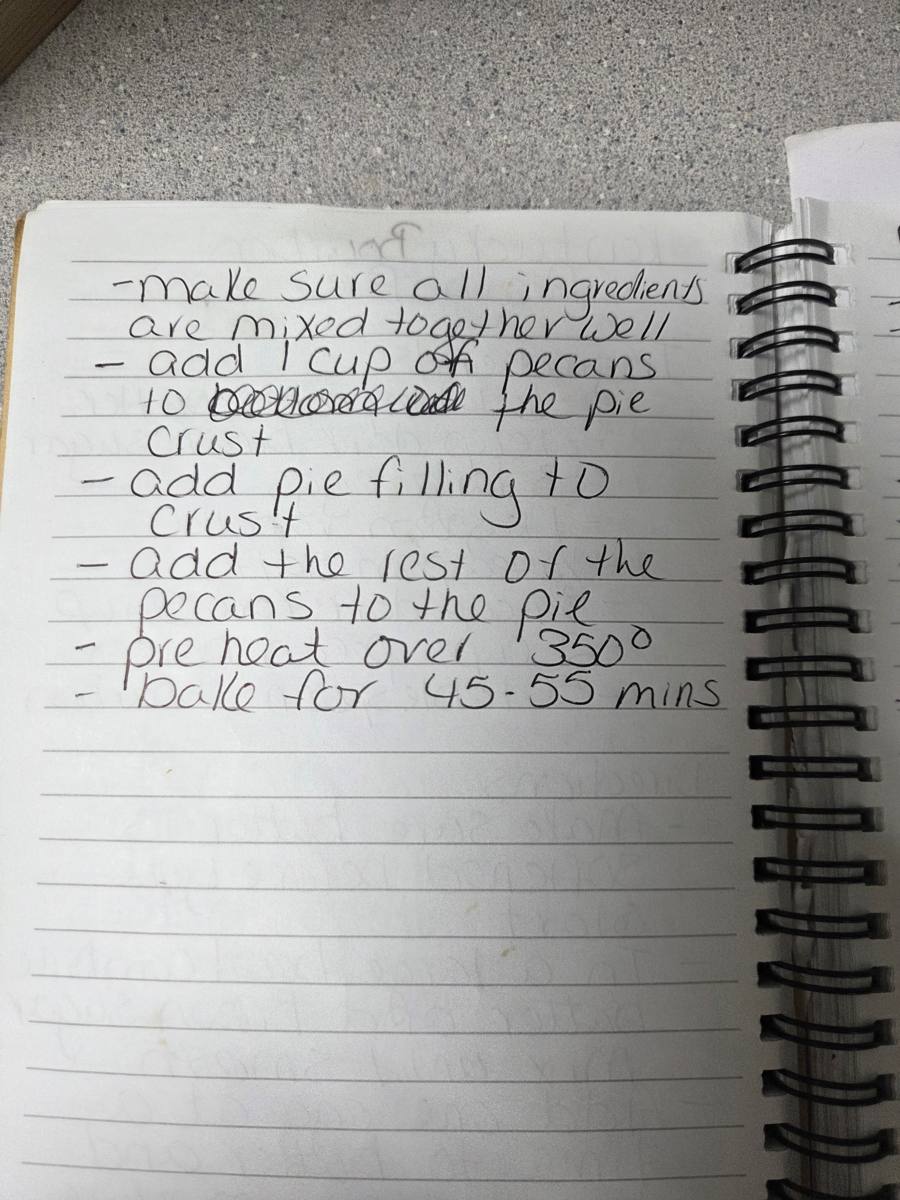 -make sure all ingredients
are mixed together well
- add 1 cup of pecans
to the pie
crust
- add pie filling to
crust
- add the rest of the
pecans to the pie
- pre heat over 350°
- bake for 45-55 mins